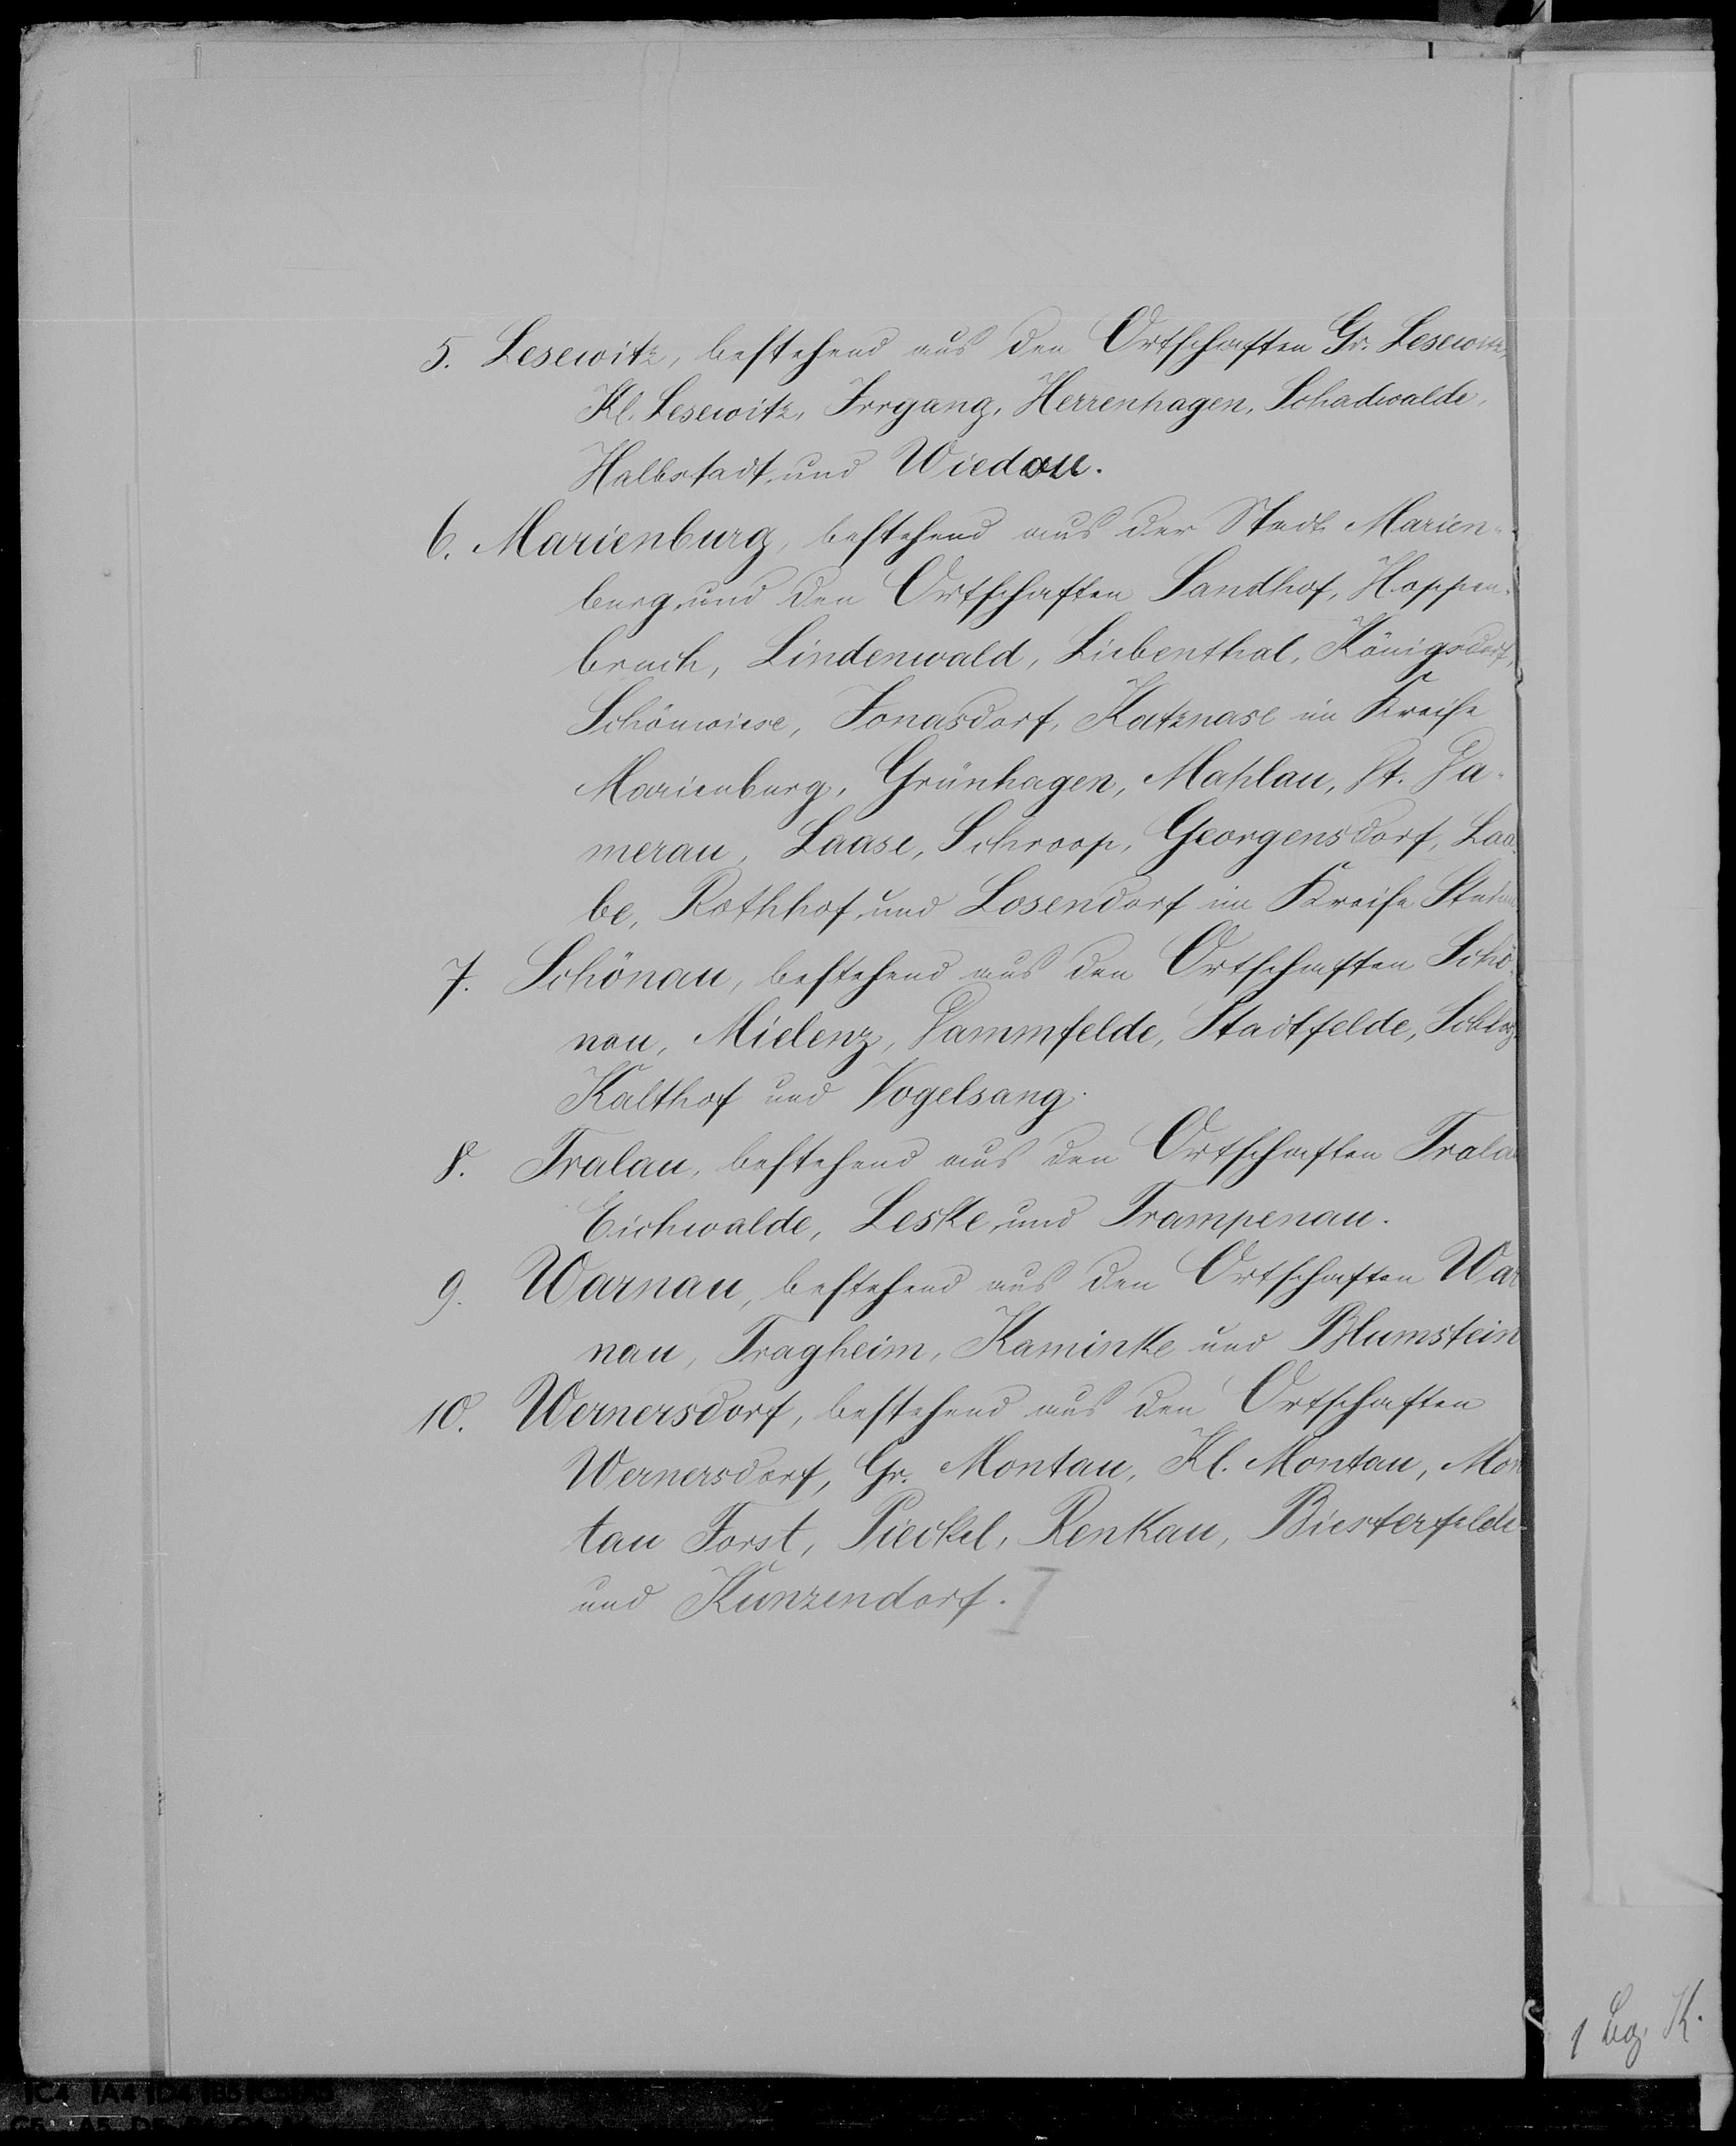 5. Lesewitz, bestehend aus den Ortschaften Gr. Lesewitz,
Kl. Lesewitz, Irrgang, Herrenhagen, Schadwalde,
Halbstadt und Wiedau.
6. Marienburg, bestehend aus der Stadt Marien-
burg und den Ortschaften Sandhof, Hoppen-
bruch, Lindenwald, Liebenthal, Königsdorf,
Schönwiese, Jonasdorf, Katznase im Kreise
Marienburg, Grünhagen, Mahlau, St. Da-
merau, Laase, Schroop, Georgensdorf, Laa-
be, Rothhof und Losendorf im Kreise Stuhm
7. Schönau, bestehend aus den Ortschaften Schö-
nau, Mielenz, Dammfelde, Stadtfelde,
Kalthof und Vogelsang.
8. Tralau, bestehend aus den Ortschaften Trala
Eichwalde, Leske und Trampenau.
9. Warnau, bestehend aus den Ortschaften War
nau, Tragheim, Kaminke und Blumstein
10. Wernersdorf, bestehend aus den Ortschaften
Wernersdorf, Gr. Montau, Kl. Montau, Mon
tau Forst, Pieckel, Renkau, Biesterfelde
und Kunzendorf. I
1 K.